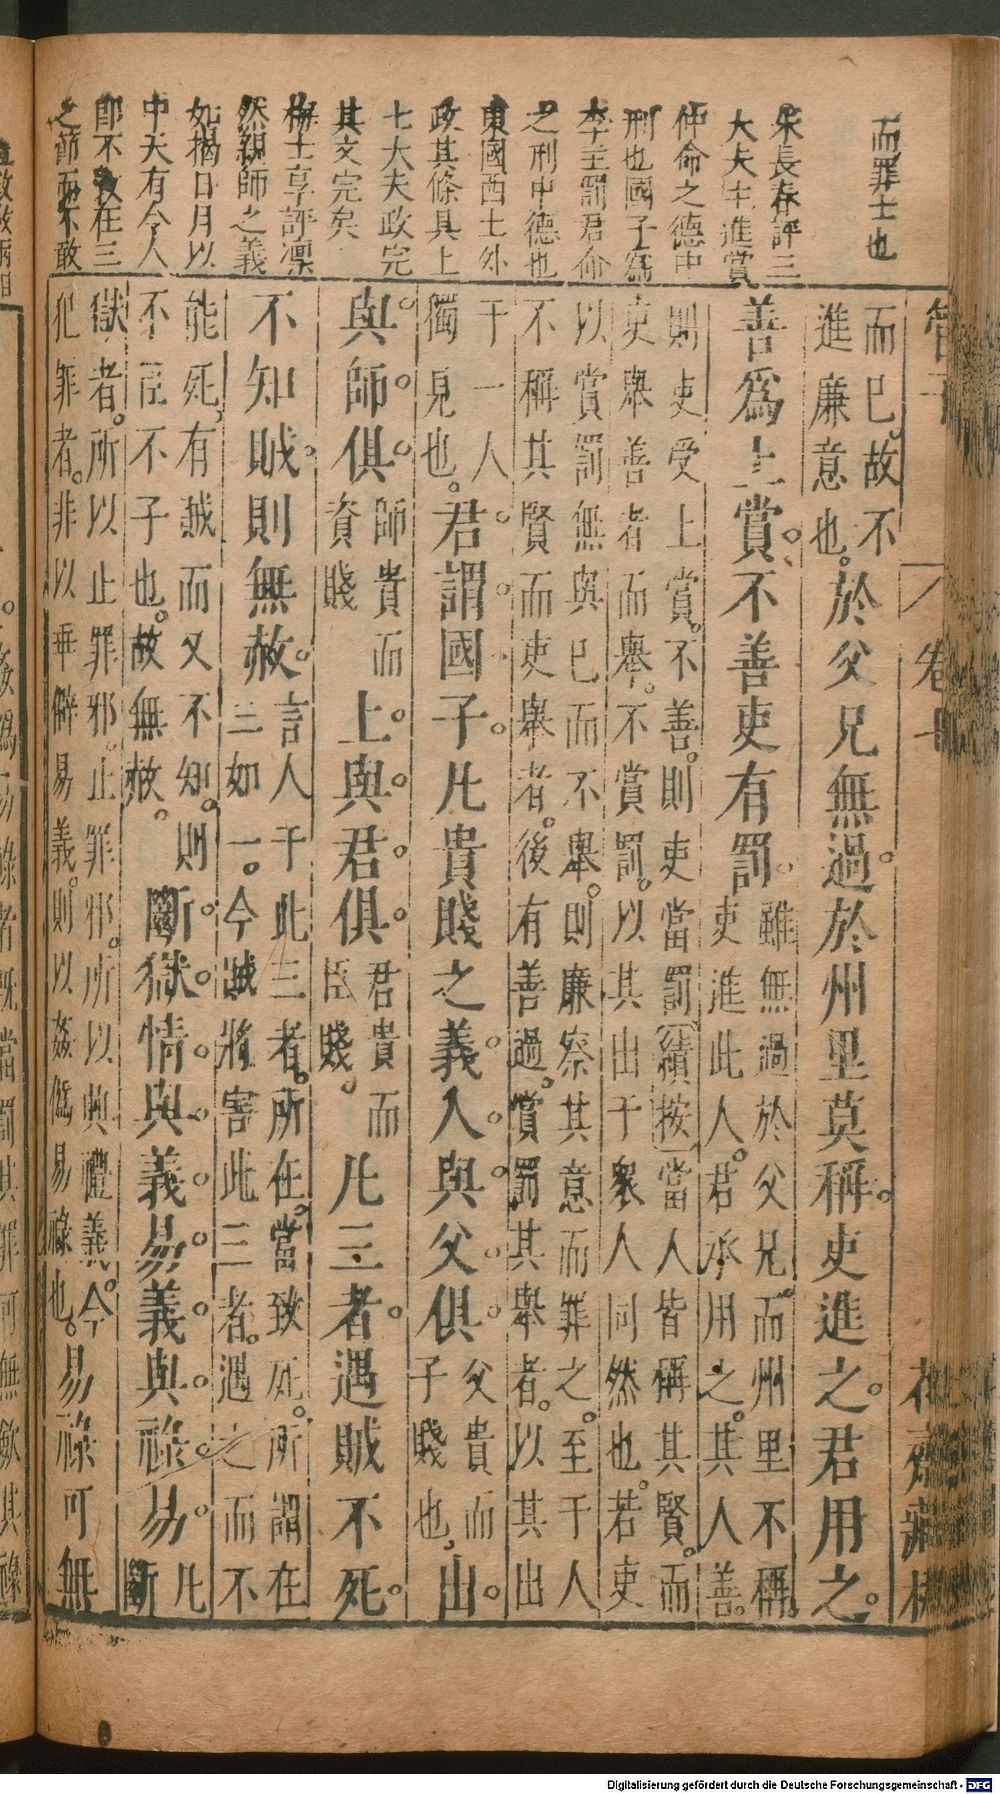 而罪士也
朱長春評三
大夫主進賞
仲命之德中
刑也國子爲
李主罰君命
之刑中德也
東國西土外
政其條具上
七大夫政完
其文完矣
梅士享評凜
然親師之義
如揭日月以
中夫有今人
卽不敢在三
之節而不敢
管子 卷十 花齋藏板
而已。故不進廉意也。於父兄無過。於州里莫稱。吏進之。君用之。
善爲上賞。不善吏有罰。雖無過於父兄。而州里不稱。吏進此人。君承用之。其人善。
則吏受上賞。不善。則吏當罰。績按當人皆稱其賢。而吏舉善者而舉。不賞罰。以其出于衆人同然也。若吏
以賞罰無與已而不舉。則廉察其意而罪之。至于人不稱其賢而吏舉者。後有善過。賞罰其舉者。以其出
于一人獨見也。君謂國子。凡貴賤之義。入與父俱。父貴而子賤也。出
與師俱。師貴而資賤上與君俱。君貴而臣賤。凡三者。遇賊不死。
不知賊。則無赦。言人于此三者。所在。當致死。所謂在三如一。今賊將害此三者。遇之而不
能死。有賊而又不知。則不臣不子也。故無赦。斷獄情與義易。義與祿易。凡斷
獄者。所以止罪邪。止罪邪。所以興禮義。今犯罪者。非以乖僻易義。則以姦僞易祿也。易祿可無
Digitalisierung gefördert durch die Deutsche Forschungsgemeinschaft - DFG